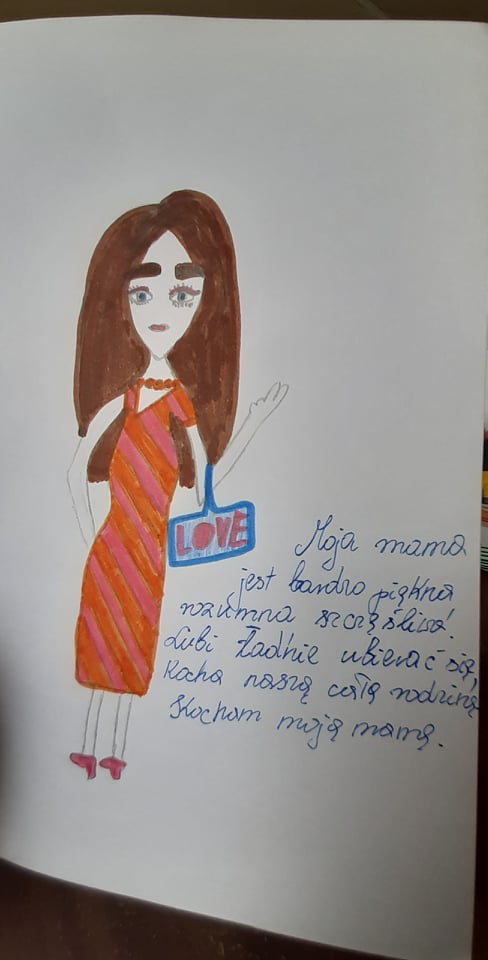 LOVE
Moja mama
jest bardzo piękna
rozumna szczęśliwa.
Lubi ładnie ubierać się,
Kocha naszą całą rodzinę
Kocham moją mamę.